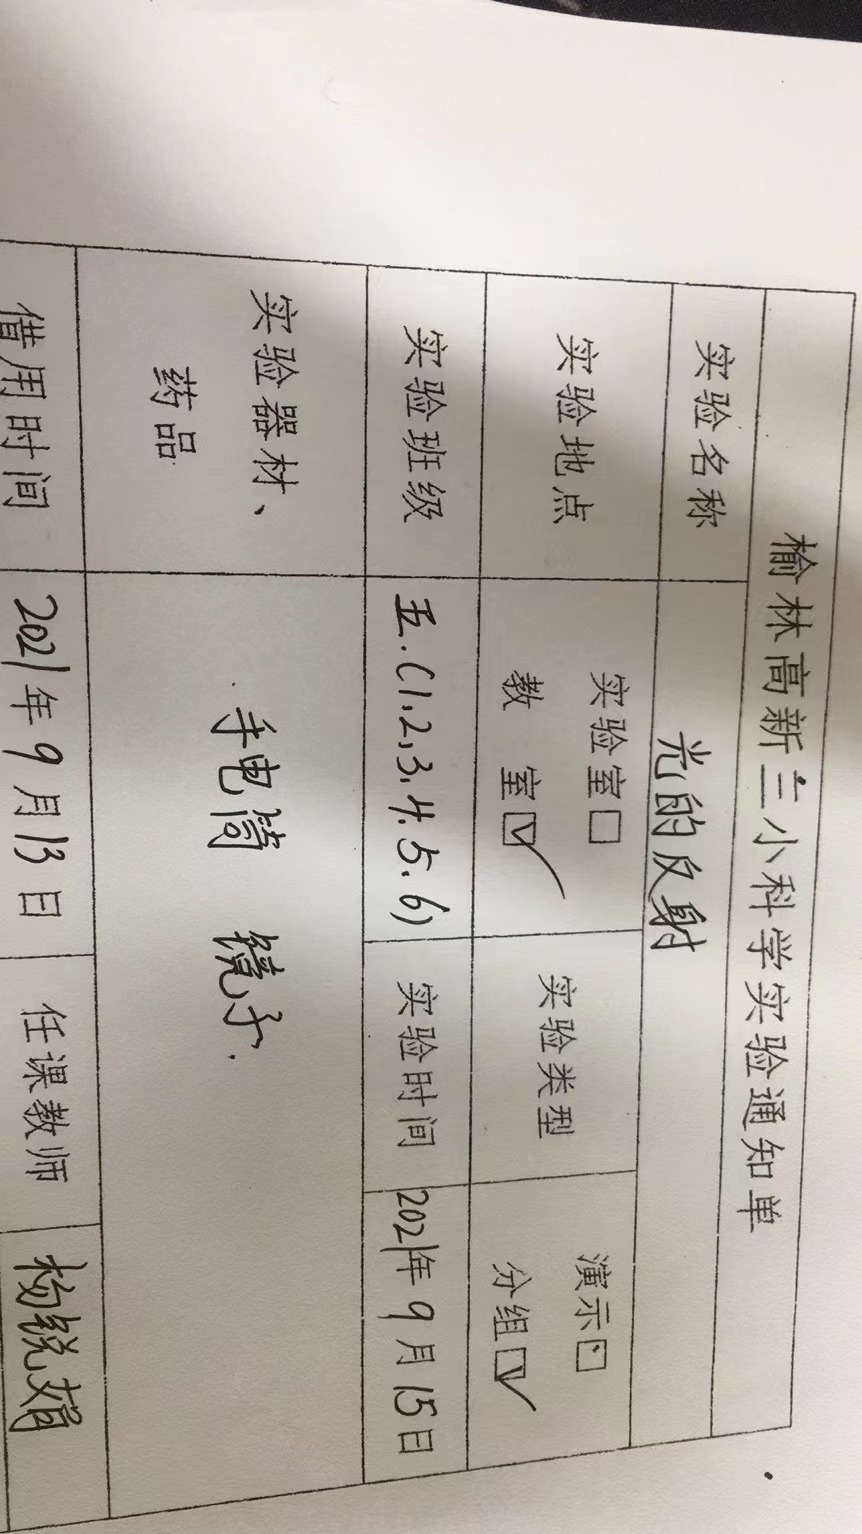 榆林高新三小科学实验通知单
实验名称 光的反射
实验地点 实验室□ 教 室☑ 实验类型 演示□ 分组☑
实验班级 五.(1.2.3.4.5.6) 实验时间 2021年9月15日
实验器材、药品 手电筒 镜子.
借用时间 2021年9月13日 任课教师 杨锐娟